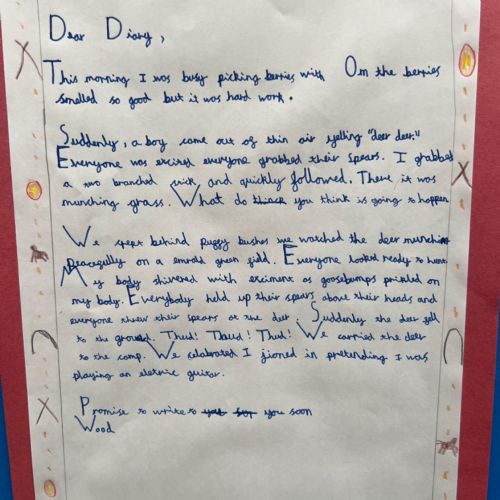 Dear Diary,
This morning I was busy picking berries with Om the berries
smelled so good but it was hard work.
Suddenly, a boy come out of thin air yelling "deer deer."
Everyone was excired everyone grabbed their spears. I grabbed
a two branched and quickly followed. There it was
munching grass. What do think you think is going to happen
We behind bushes we watched the deer munching
peacegully on a emrald green gield. Everyone looked ready to hunt
My body shivered with exciment as goosebumps prickled on
my body. Everybody held up their spears above their heads and
everyone threw their spears at the deer. Suddenly the deer gell
to the ground. Thud! Thud! Thud! We carried the deer
to the camp. We celabrated I jioned in pretending I was
playing an eletric guitar.
Promise to write to you soon
Wood